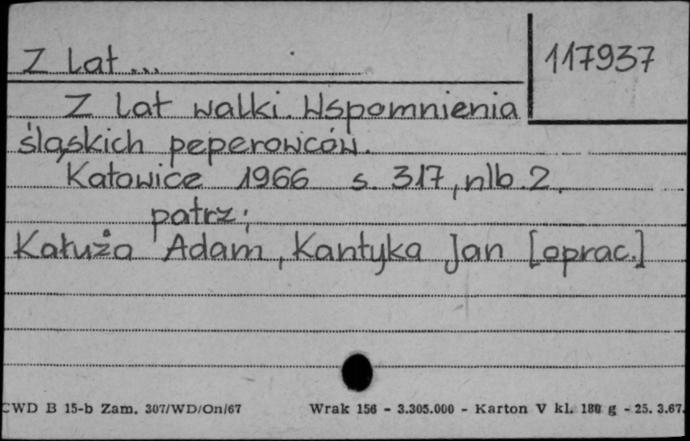 Z lat...
117937
Z lat walki. Wspomnienia
śląskich peperowców.
Katowice 1966 s. 317, nlb. 2.
patrz:
Kałuża Adam, Kantyka Jan [oprac.]
CWD B 15-b Zam. 307/WD/On/67
Wrak 156 - 3.305.000 - Karton V kl. 180 g - 25. 3.67.